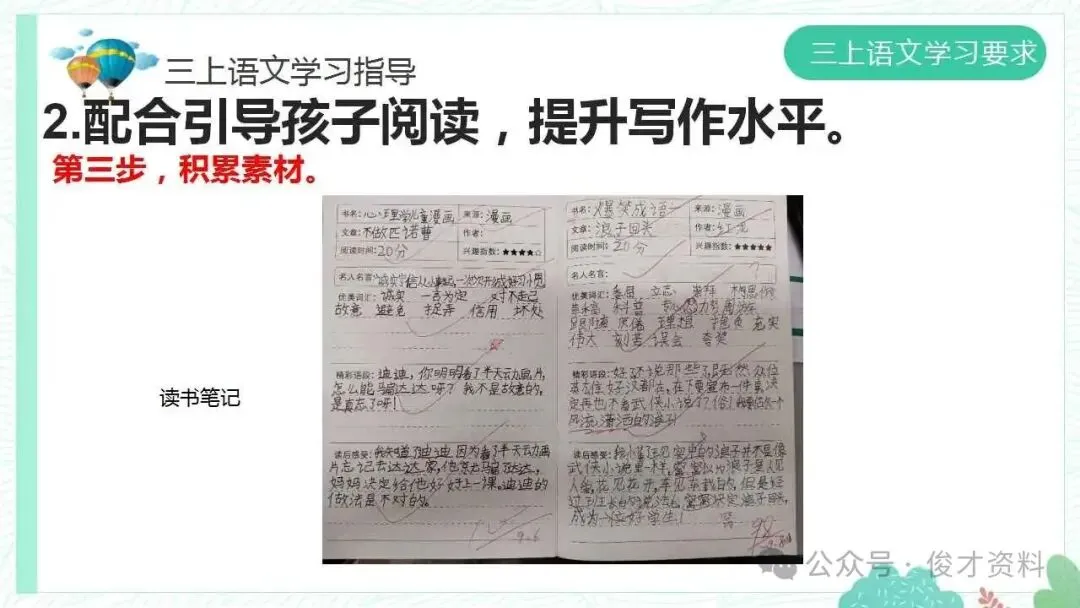 三上语文学习要求
三上语文学习指导
2.配合引导孩子阅读，提升写作水平。
第三步，积累素材。
读书笔记
书名：心理学儿童漫画
来源：漫画
文章：不做匹诺曹
作者：
阅读时间：20分
兴趣指数：★★★★☆
名人名言：
优美词汇：诚实 一言为定 对不起
故意 避免 捉弄 信用 坏处
精彩语段：迪迪，你明明看了半天动画片，
怎么能骗达达呀？我不是故意的，
是真忘了呀！
读后感受：我知道了迪迪因为看了半天动画
片忘记去达达家，他还去骗达达，
妈妈决定给他好好上一课。迪迪的
做法是不对的。
9.6
书名：爆笑成语一
来源：漫画
文章：浪子回头
作者：
阅读时间：20分
兴趣指数：★★★★★
名人名言：
优美词汇：立志
科普 周游
理想 抱负 充实
伟大 刻苦 误会 夸奖
精彩语段：
定再也不看武侠小说了！
风流潇洒的浪子！
读后感受：
武侠小说里一样，
人爱，花见花开，车见车载的，但是经
成为一位好学生！
公众号·俊才资料